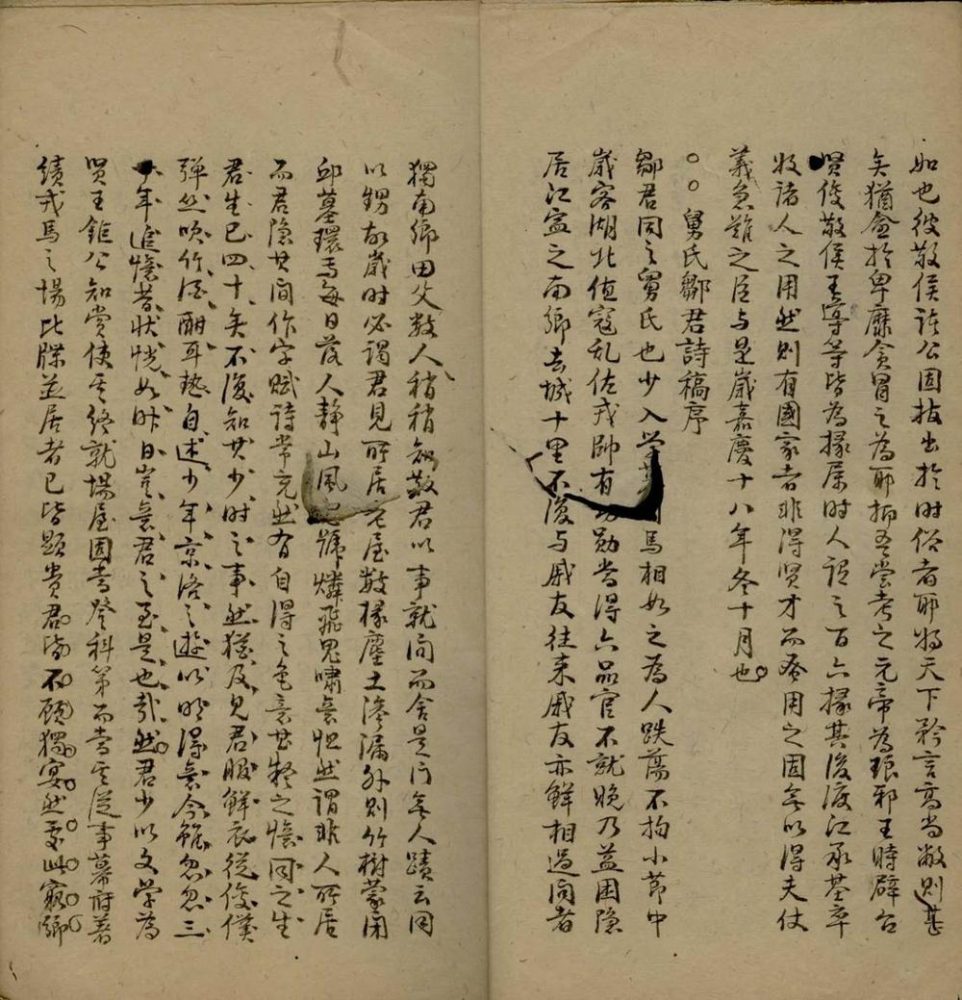 如也彼敬侯諸公固拔出於時俗者耶將天下矜言高尚敝則甚
矣猶愈於卑靡貪冒之為耶抑吾嘗考之元帝為琅邪王時辟召
賢俊敬侯王導等皆為掾屬时人謂之百六掾其後渡江承基卒
收諸人之用然則有國家者非得賢才而蚤用之固無以得夫仗
義急難之臣与是歲嘉慶十八年冬十月也
舅氏鄒君詩稿序
鄒君同之舅氏也少入学 馬相如之為人跌蕩不拘小節中
歲客湖北值寇乱佐戎帥有 勋當得六品官不就晚乃益困隐
居江寍之南鄉去城十里不復与戚友往来戚友亦鮮相過问者
獨南鄉田父数人稍稍知敬君以事就问而舍是门無人蹟云同
以甥故歲时必謁君見所居老屋数椽塵土滲漏外則竹樹蒙闭
邱墓環焉每日落人静山風 號燐飛鬼嘯無怛然謂非人所居
而君隐其间作字賦詩常充然有自得之色意甚 之憶同之生
君生已四十矣不復知其少时之事然猶及見君服鮮衣從俊僕
彈丝吹竹酒酣耳熱自述少年京洛之遊以 得意今能忽忽三
十年追憶昔状恍如昨日豈意君之至是也哉然君少以文学為
賢王鉅公知賞使其終就場屋固當登科第而當其從事幕府著
績戎馬之場比牒並居者已皆顕貴君皆不顧獨窅然 此窮鄉